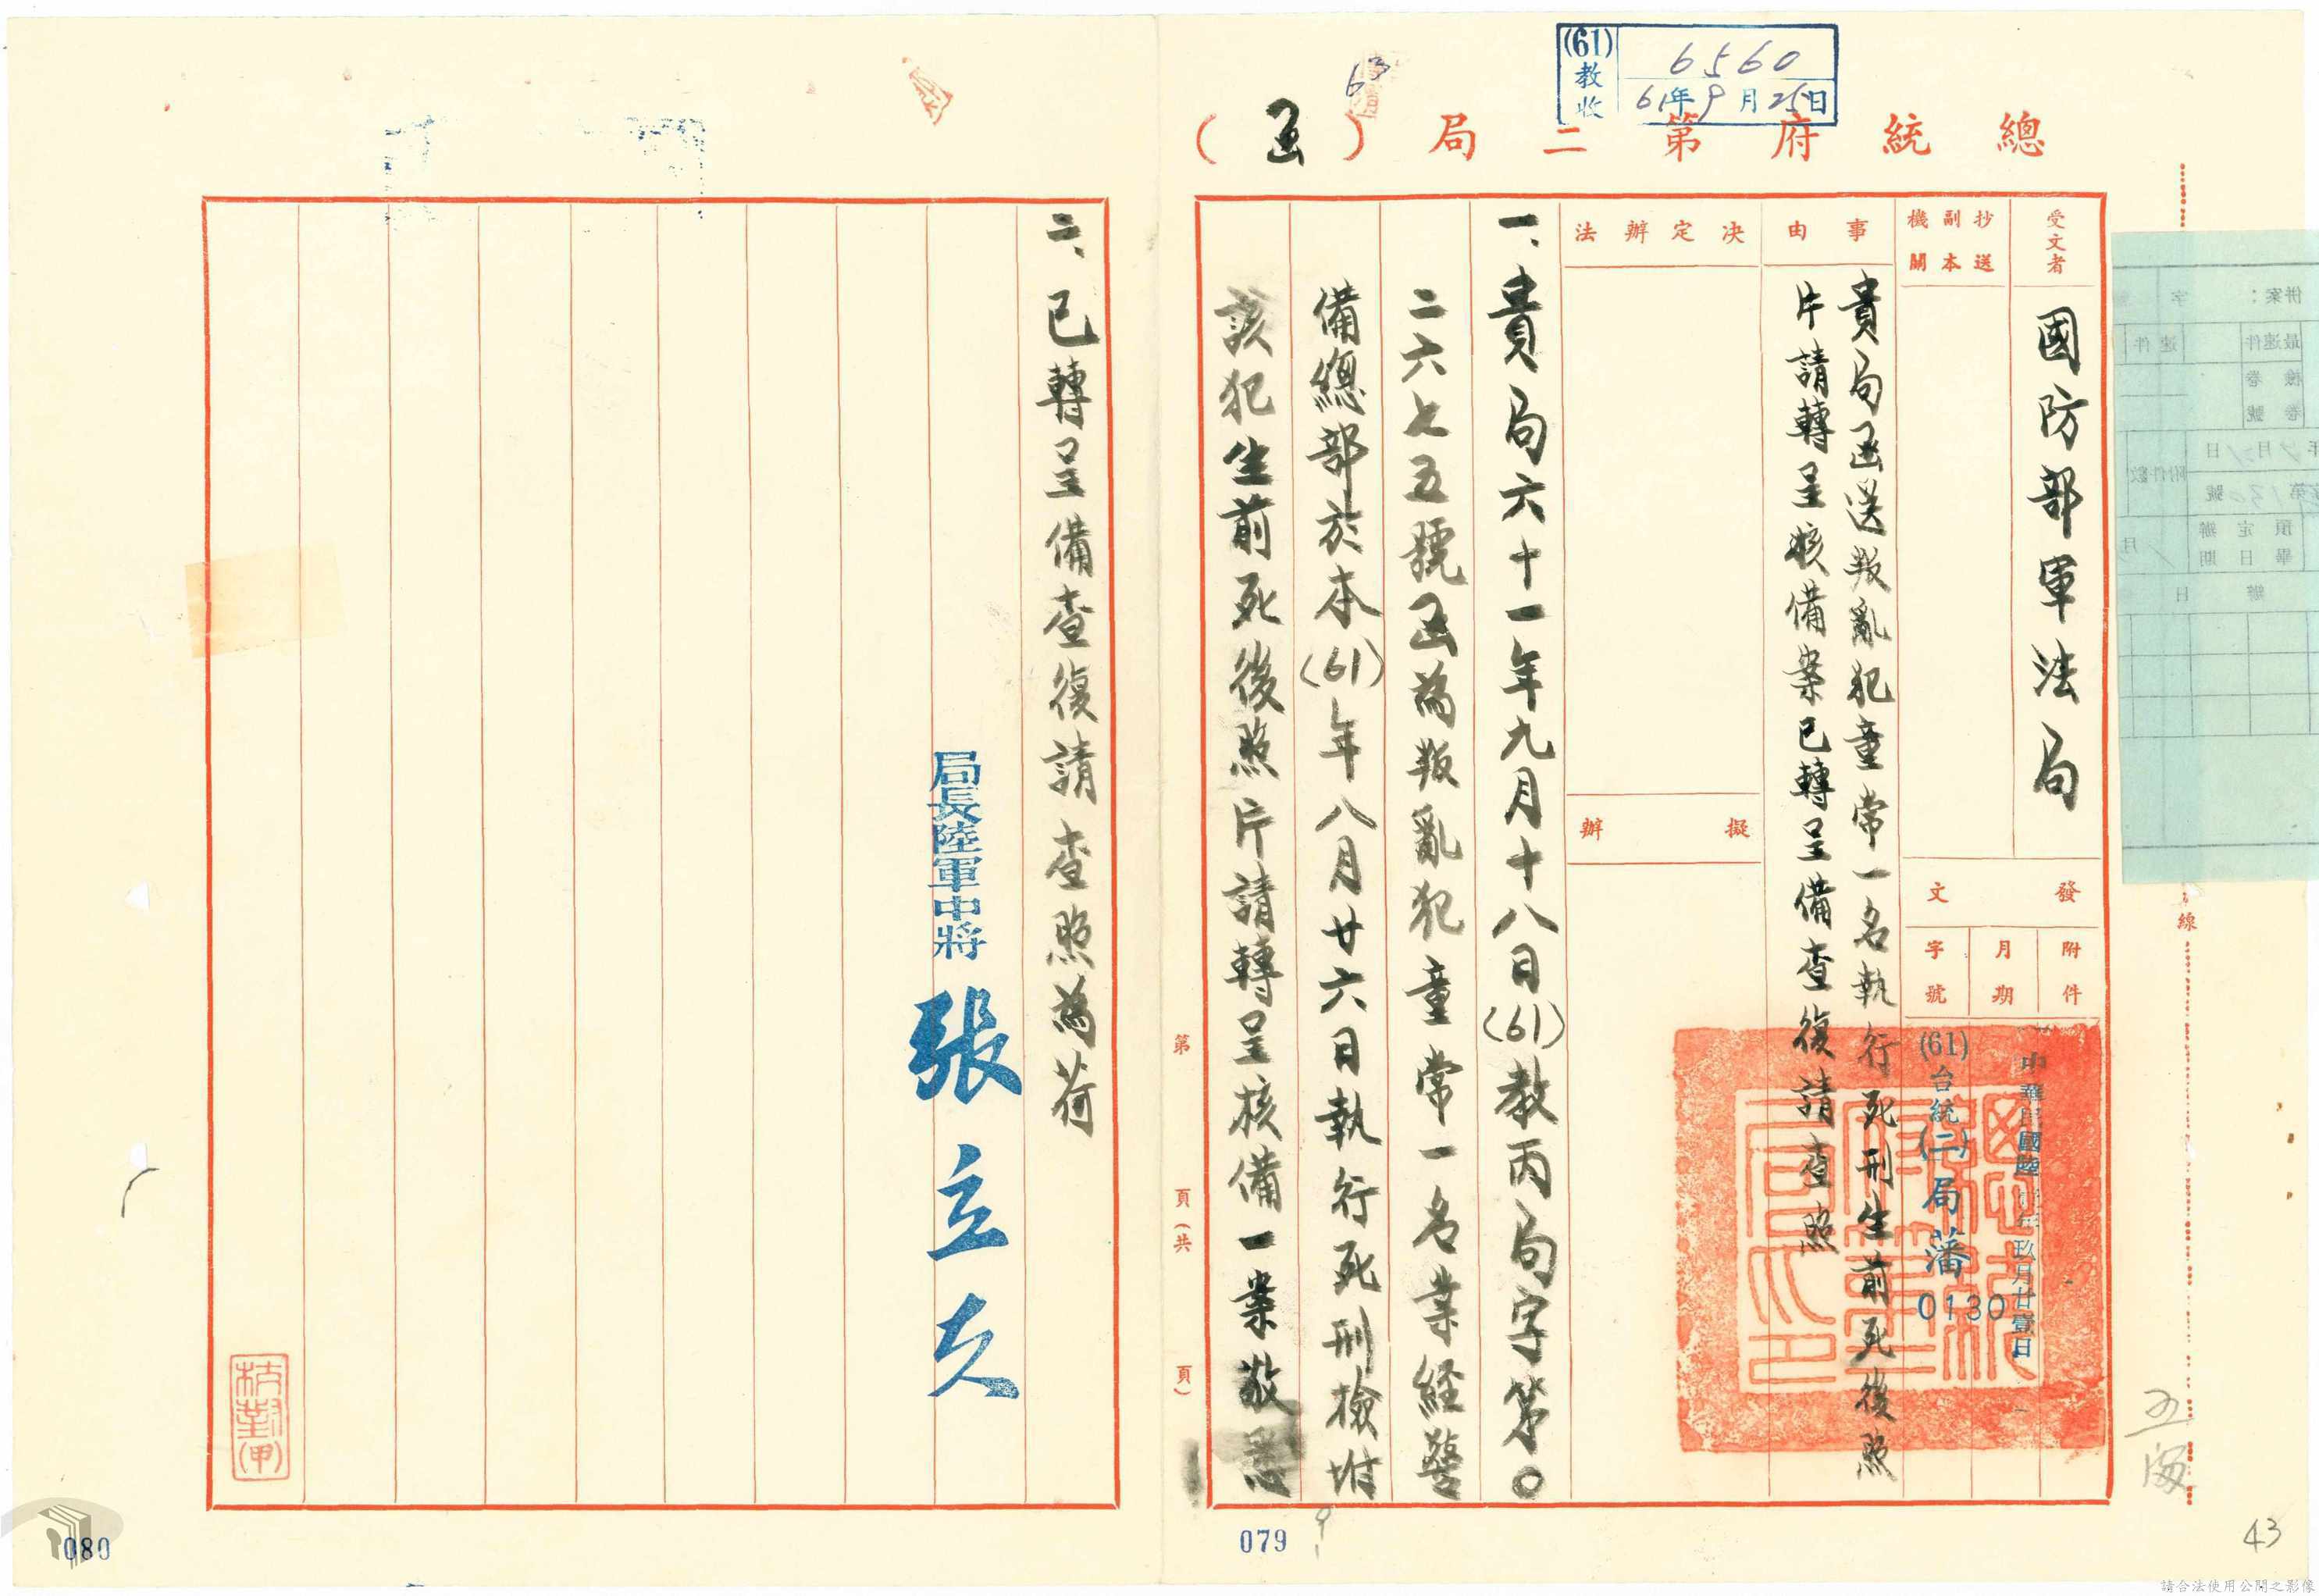 (61)教收
6560
61年9月25日
63
總統府第二局(函)
受文者
國防部軍法局
抄送副本機關
發文
附件
月期
字號
中華民國陸拾壹年玖月廿壹日
(61)台統(二)局藩0130
事由
貴局函送叛亂犯童常一名執行死刑生前死後照
片請轉呈核備案已轉呈備查復請查照
決定辦法
擬辦
一、貴局六十一年九月十八日(61)教丙局字第〇
二六七五號函為叛亂犯童常一名業經警
備總部於本(61)年八月廿六日執行死刑檢附
該犯生前死後照片請轉呈核備一案敬悉
二、已轉呈備查復請查照為荷
局長陸軍中將 張立夫
第 頁(共 頁)
線
併案:
字
最速件
速件
檢卷
卷號
附件數
預定辦畢日期
校對(甲)
079
080
43
請合法使用公開之影像